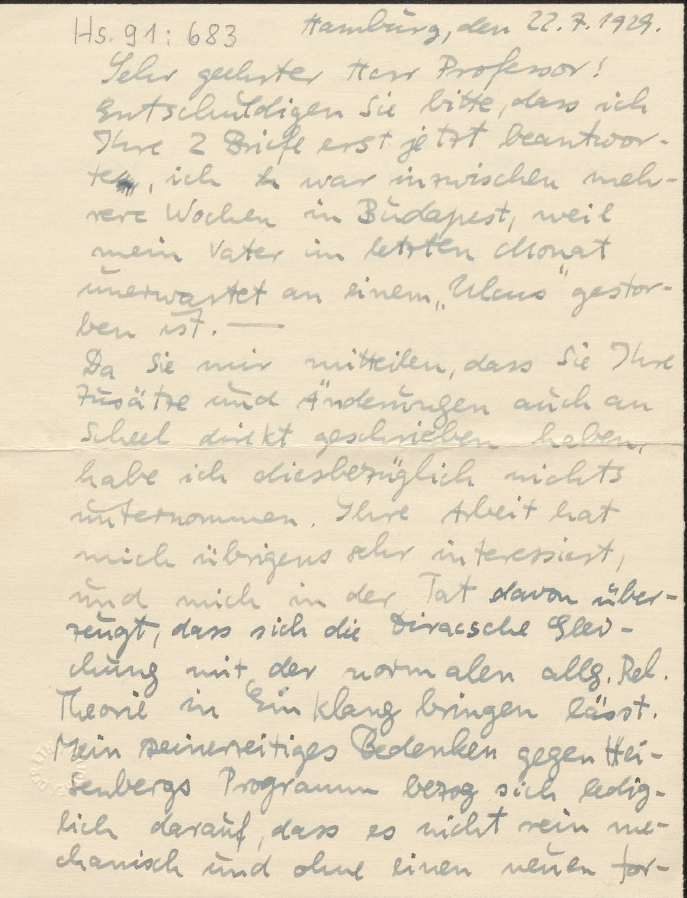 Hs. 91: 683
Hamburg, den 22.7.1929.
Sehr geehrter Herr Professor!
Entschuldigen Sie bitte, dass ich
Ihre 2 Briefe erst jetzt beantwor-
te, ich war inzwischen meh-
rere Wochen in Budapest, weil
mein Vater im letzten Monat
unerwartet an einem „Ulcus" gestor-
ben ist. —
Da Sie mir mitteilen, dass Sie Ihre
Zusätze und Änderungen auch an
Scheel direkt geschrieben haben,
habe ich diesbezüglich nichts
unternommen. Ihre Arbeit hat
mich übrigens sehr interessiert,
und mich in der Tat davon über-
zeugt, dass sich die Diracsche Glei-
chung mit der normalen allg. Rel.
Theorie in Einklang bringen lässt.
Mein seinerzeitiges Bedenken gegen Hei-
senbergs Programm bezog sich ledig-
lich darauf, dass es nicht rein me-
chanisch und ohne einen neuen for-